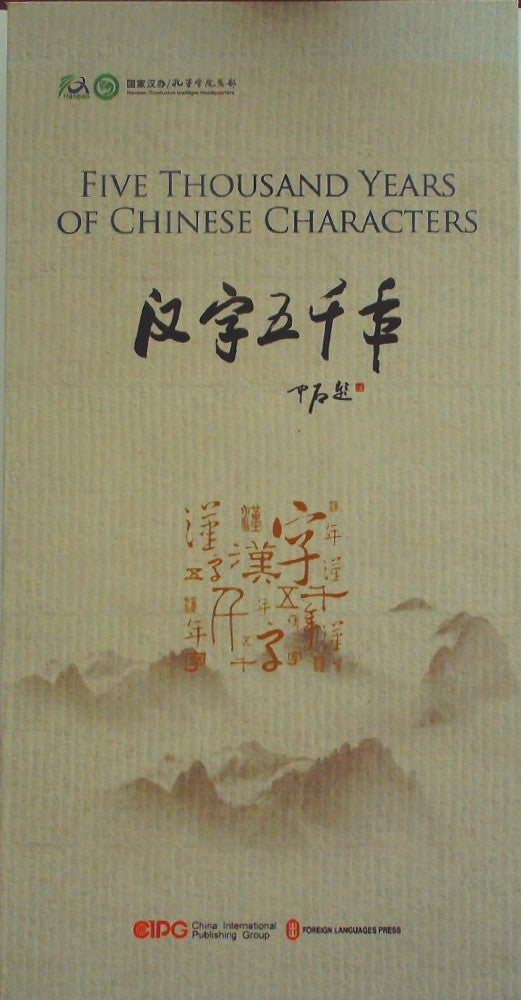 Hanban
国家汉办/孔子学院总部
Hanban/Confucius Institute Headquarters
FIVE THOUSAND YEARS
OF CHINESE CHARACTERS
汉字五千年
中石题
漢 漢 字 年
字 漢 漢
五 千 五 千
年 年 年 漢
年 字 五千 字 字
CIPG China International
Publishing Group
FOREIGN LANGUAGES PRESS